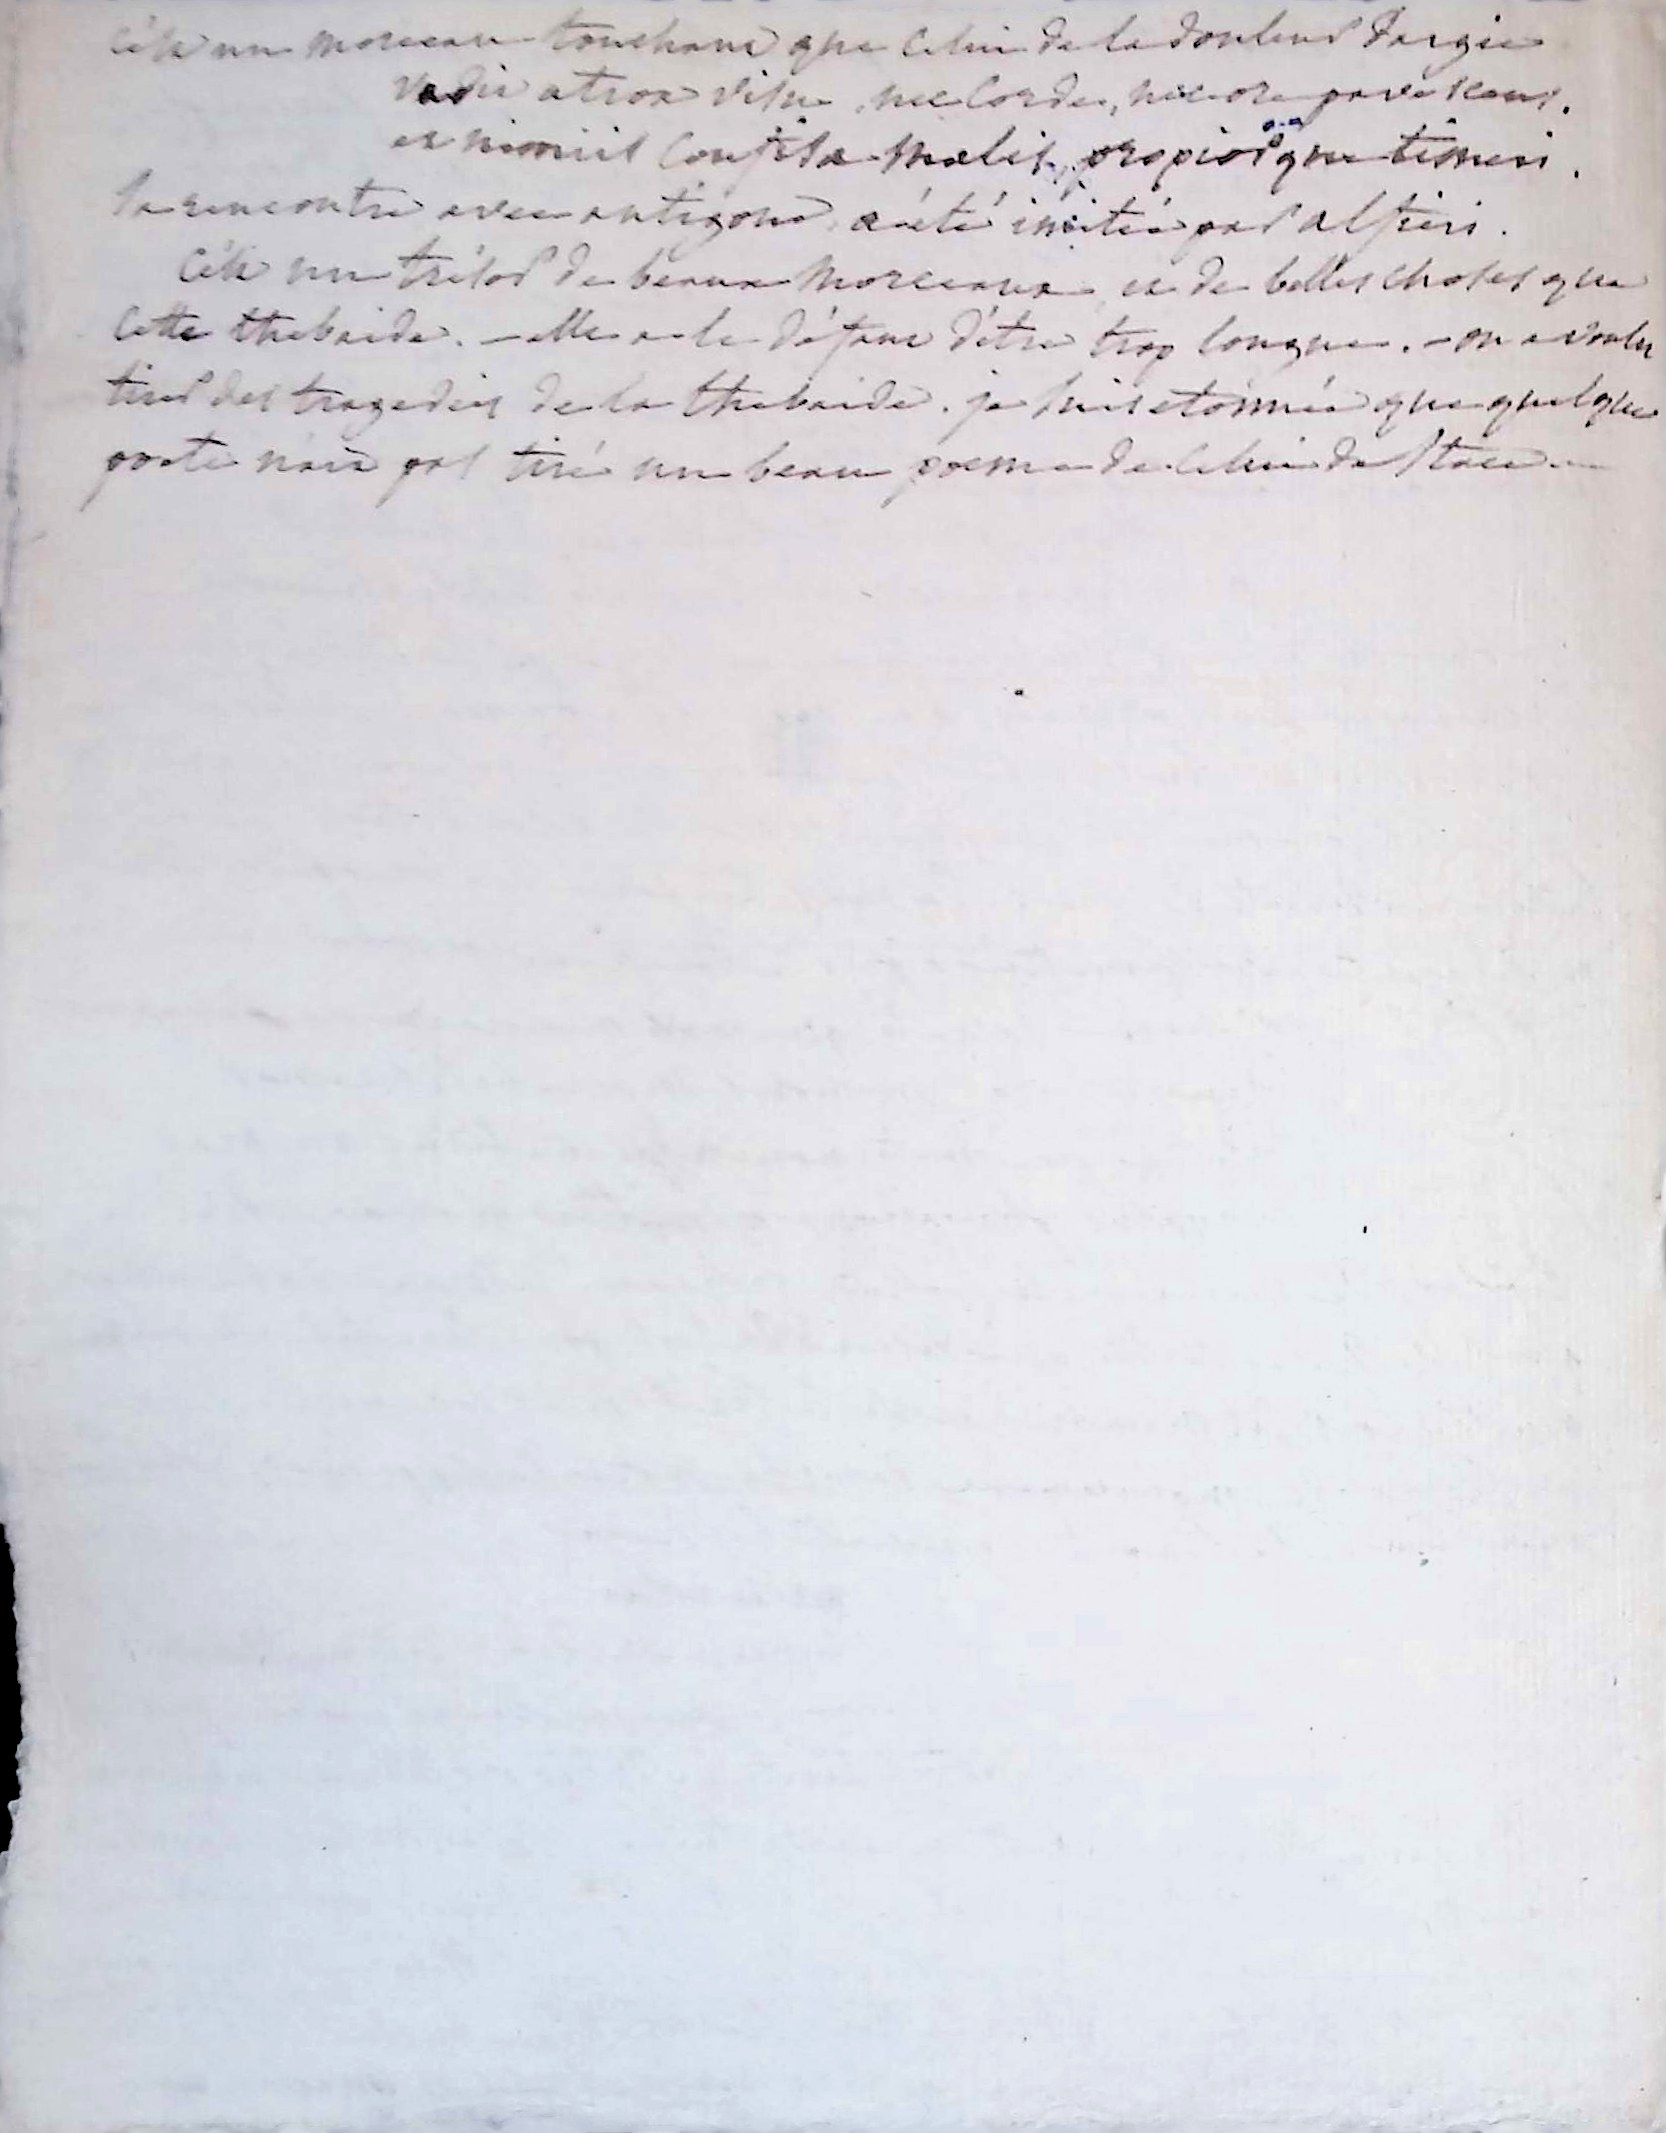 c'est un morceau touchant que celui de la douleur d'argie
vadit atrox visu, nec corde, nec ore pavescens.
et nimiis confisa malis, propiorque timeri.
sa rencontre avec antigone, a été imitée par alfieri.
C'est un trésor de beaux morceaux, et de belles choses que
cette thebaide. – elle a le défaut d'être trop longue. – on a voulu
tirer des tragedies de la thebaide. je suis etonnée que quelque
poete n'ait pas tiré un beau poeme de celui de Stace –